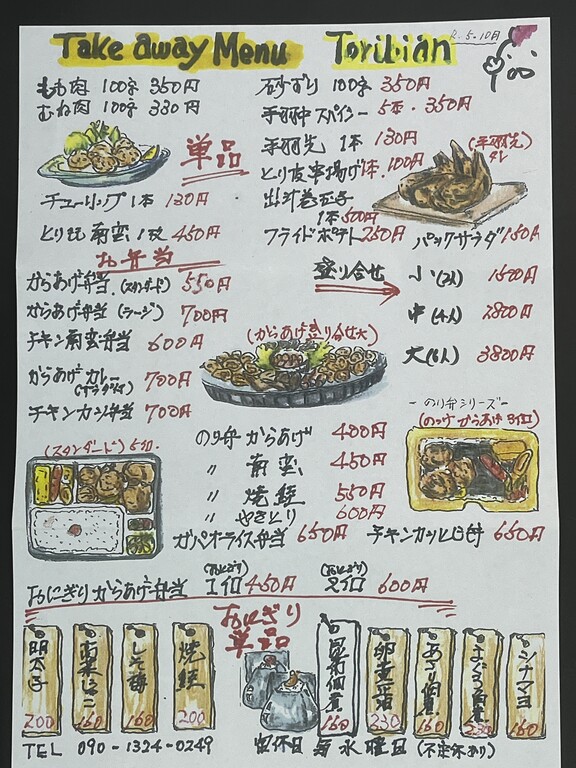 Take away Menu Toribian R.5.10月
もも肉 100g 350円
むね肉 100g 330円
単品
チューリップ 1本 130円
とりもも南蛮 1枚 450円
砂ずり 100g 350円
手羽中スパイシー 5本・350円
手羽先 1本 130円
(手羽先)タレ
とり皮串揚げ1本.100円
出汁巻玉子
1本500円
フライドポテト250円
パックサラダ150円
お弁当
からあげ弁当(スタンダード) 550円
からあげ弁当(ラージ) 700円
チキン南蛮弁当 600円
からあげカレー 700円
チキンカツ弁当 700円
盛り合せ
小(2人) 1500円
中(4人) 2800円
大(6人) 3800円
(からあげ盛り合せ大)
(スタンダード)5個.
-のり弁シリーズ-
(のっけからあげ3個)
のり弁 からあげ 400円
〃 南蛮 450円
〃 焼鮭 550円
〃 やきとり 600円
ガパオライス弁当 650円
チキンカツとじ丼 650円
おにぎりからあげ弁当 (おにぎり)1個450円 (おにぎり)2個600円
おにぎり
単品
明太子 200
高菜じゃこ 160
しそ梅 160
焼鮭 200
昆布佃煮 160
卵黄正油 230
あさり佃煮 160
まぐろ角煮 230
シナマヨ 160
TEL 090-1324-0249 店休日 毎水曜日 (不定休あり)